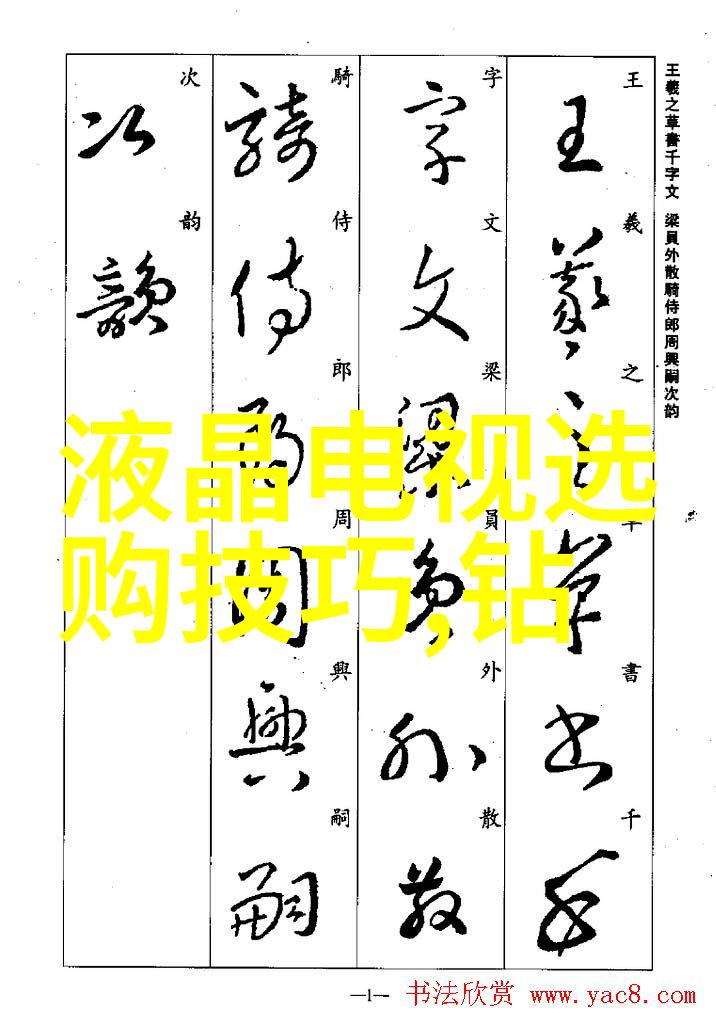 王羲之草書千字文 梁員外散騎侍郎周興嗣次韵
王羲之草書千
字文梁員外散
騎侍郎周興嗣
次韵
液晶电视选
购技巧,钻
—1—
书法欣赏 www.yac8.com